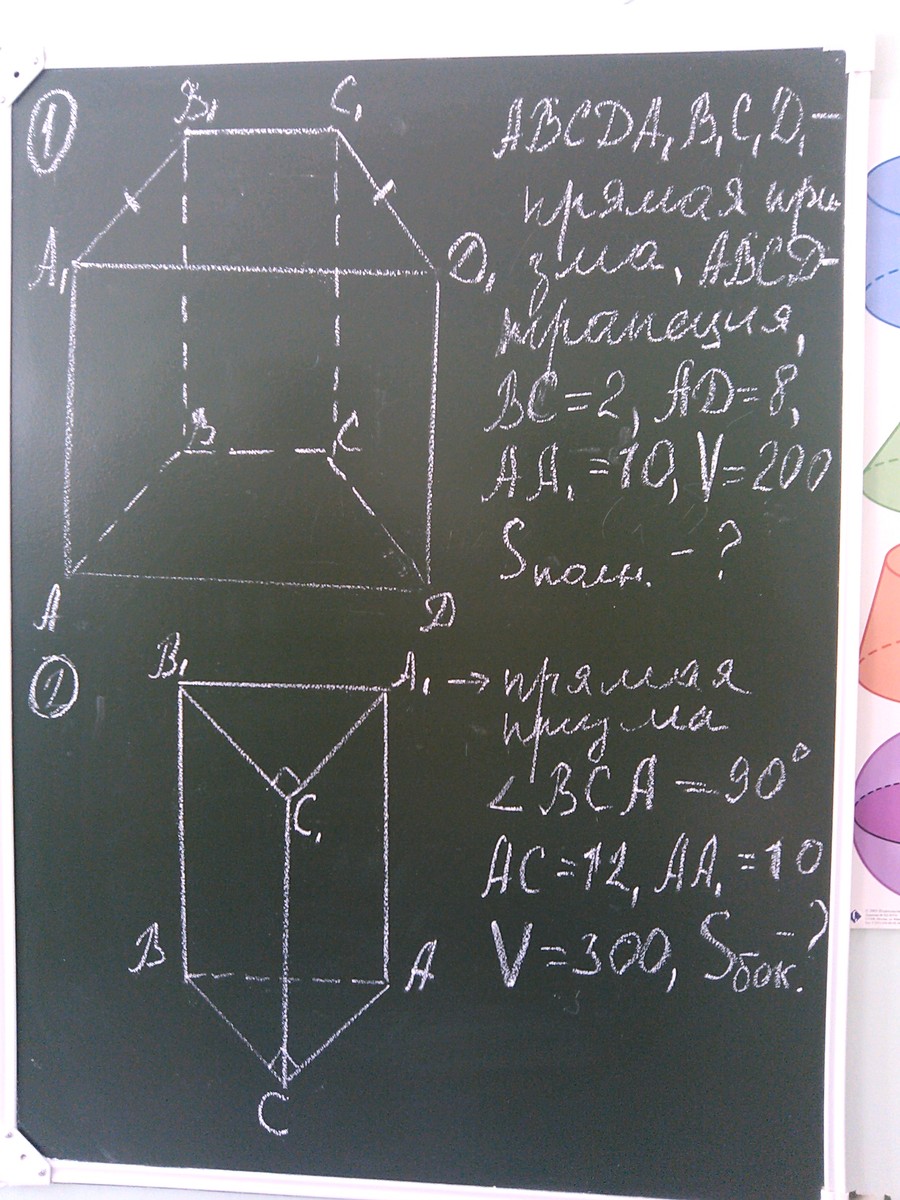 ①
B₁ C₁
A₁ D₁
B C
A D
ABCDA₁B₁C₁D₁ –
прямая при
зма, ABCD –
трапеция,
BC = 2, AD = 8,
AA₁ = 10, V = 200
Sполн. – ?
②
B₁ A₁ → прямая
призма
C₁
B A
C
∠BCA = 90°
AC = 12, AA₁ = 10
V = 300, Sбок. – ?